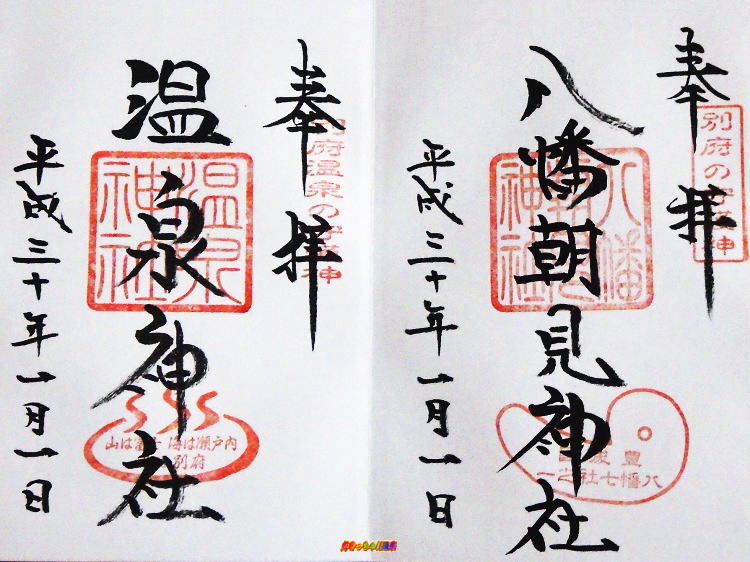 奉拝
八幡朝見神社
平成三十年一月一日
別府の守護神
八幡朝見神社
豊後国
八幡七社之一
奉拝
温泉神社
平成三十年一月一日
別府温泉の守護神
温泉神社
山は富士 海は瀬戸内
別府